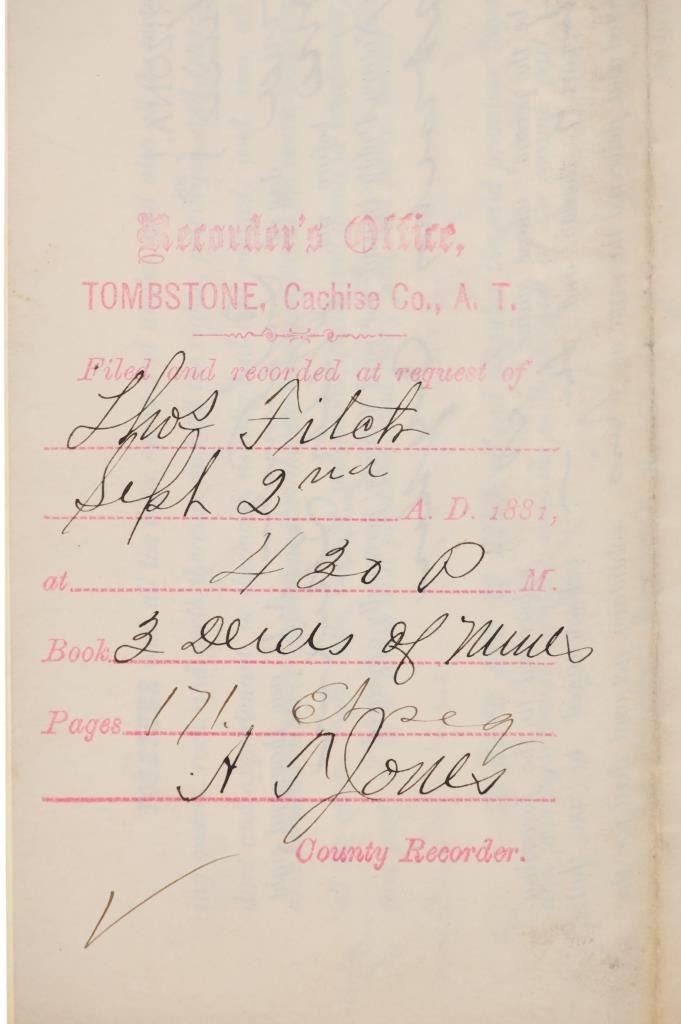 Recorder's Office,
TOMBSTONE, Cachise Co., A. T.
Filed and recorded at request of
Thos Fitch
Sept 2nd A. D. 1881,
at 4 30 P M.
Book 3 Deeds of Mines
Pages 171. Et seq
A T Jones
County Recorder.